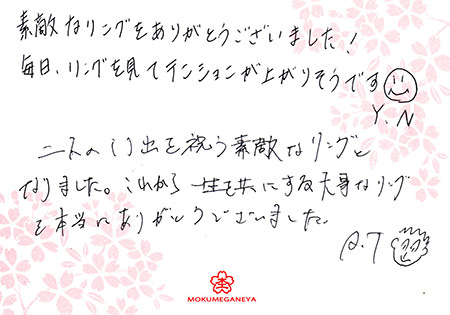 素敵なリングをありがとうございました!
毎日、リングを見てテンションが上がりそうです
Y.N
二人の門出を祝う素敵なリングと
なりました。これから一生を共にする大事なリング
を本当にありがとうございました。
A.T
MOKUMEGANEYA